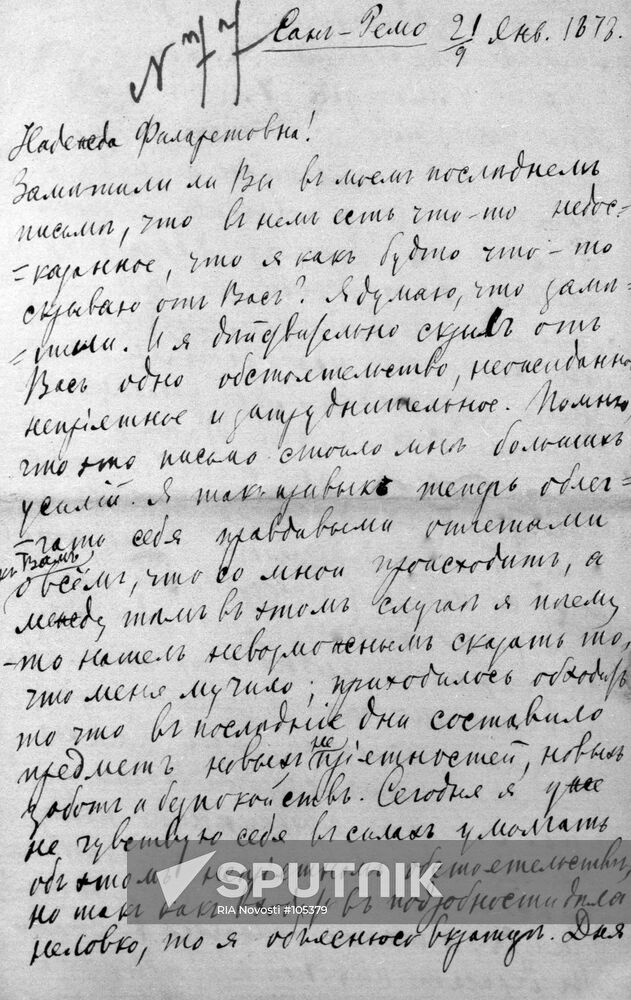 N 77
Санъ-Ремо 21/9 Янв. 1878.
Надежда Филаретовна!
Замѣтили ли Вы въ моемъ послѣднемъ
письмѣ, что въ немъ есть что-то недос-
=казанное, что я какъ будто что-то
скрываю отъ Васъ? Я думаю, что замѣ-
=тили. И я дѣйствительно скрылъ отъ
Васъ одно обстоятельство, неожиданно
непріятное и затруднительное. Помню
что это письмо стоило мнѣ большихъ
усилій. Я такъ привыкъ теперь облег-
=чать себя правдивыми отчетами
къ Вамъ
о всёмъ, что со мной происходитъ, а
между тѣмъ въ этомъ случаѣ я почему
-то нашелъ невозможнымъ сказать то,
что меня мучило; приходилось обходить
то что въ послѣдніе дни составило
предметъ новыхъ непріятностей, новыхъ
заботъ и безпокойствъ. Сегодня я уже
не чувствую себя въ силахъ умолчать
объ этомъ обстоятельствѣ,
но такъ какъ въ подробности дѣла
неловко, то я объяснюсь вкратцѣ. Дня
SPUTNIK
RIA Novosti #105379